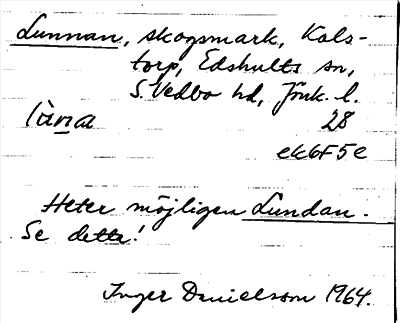 Lunnan, skogsmark, Kols-
torp, Edshults sn,
S. Vedbo hd, Jönk. l.
lùna 28
ek6F5e
Heter möjligen Lundan.
Se detta!
Inger Danielsson 1964.